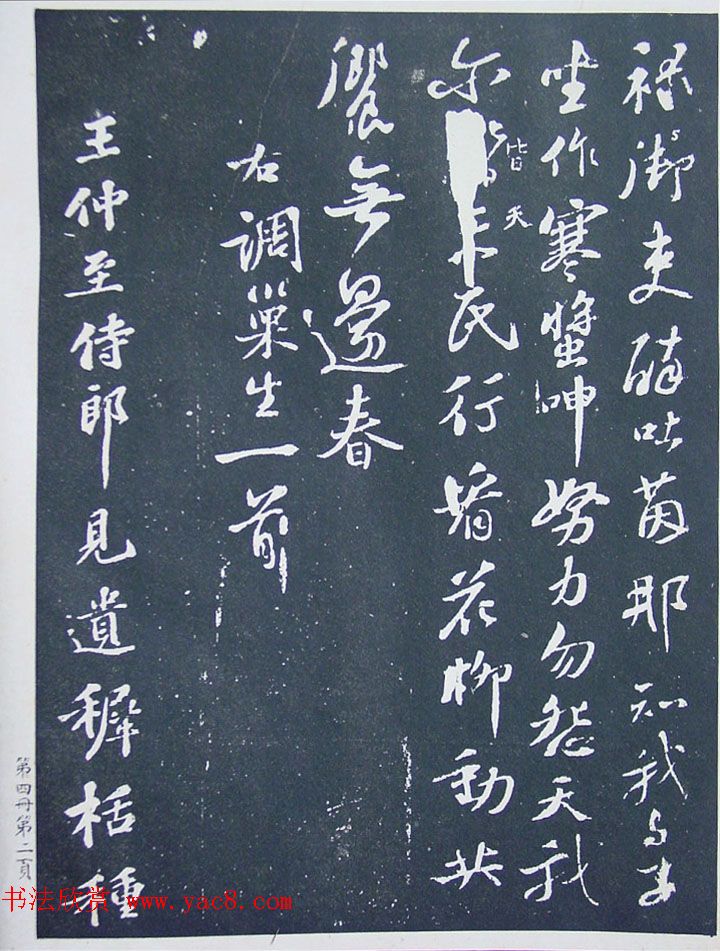 禄御吏醉吐茵那知我与子
坐作寒螿呻努力勿怨天我
尔皆天民行看花柳動共
饗無邊春
右調巢生一首
王仲至侍郎見遺穉栝種
第四冊第二頁
书法欣赏 www.yac8.com